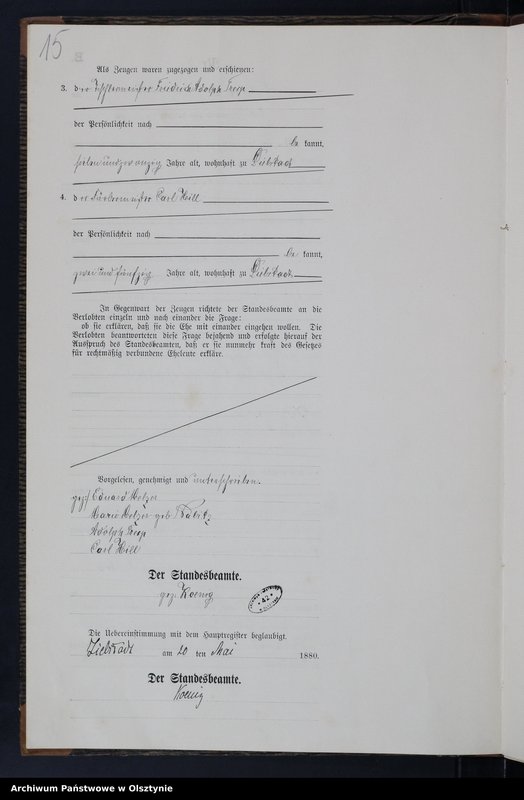 15
Als Zeugen waren zugezogen und erschienen:
3. der Tischlermeister Friedrich Adolph Troje
der Persönlichkeit nach
be kannt,
siebenundzwanzig Jahre alt, wohnhaft zu Liebstadt
4. der Färbermeister Carl Hill
der Persönlichkeit nach
be kannt,
zwei und fünfzig Jahre alt, wohnhaft zu Liebstadt
In Gegenwart der Zeugen richtete der Standesbeamte an die
Verlobten einzeln und nach einander die Frage:
ob sie erklären, daß sie die Ehe mit einander eingehen wollen. Die
Verlobten beantworteten diese Frage bejahend und erfolgte hierauf der
Ausspruch des Standesbeamten, daß er sie nunmehr kraft des Gesetzes
für rechtmäßig verbundene Eheleute erkläre.
Vorgelesen, genehmigt und unterschrieben.
gez. Eduard Melzer
Marie Melzer geb.
Adolph
Carl Hill
Der Standesbeamte.
gez. Koenig
Die Uebereinstimmung mit dem Hauptregister beglaubigt.
Liebstadt am 20 ten Mai 1880.
Der Standesbeamte.
Koenig
Archiwum Państwowe w Olsztynie